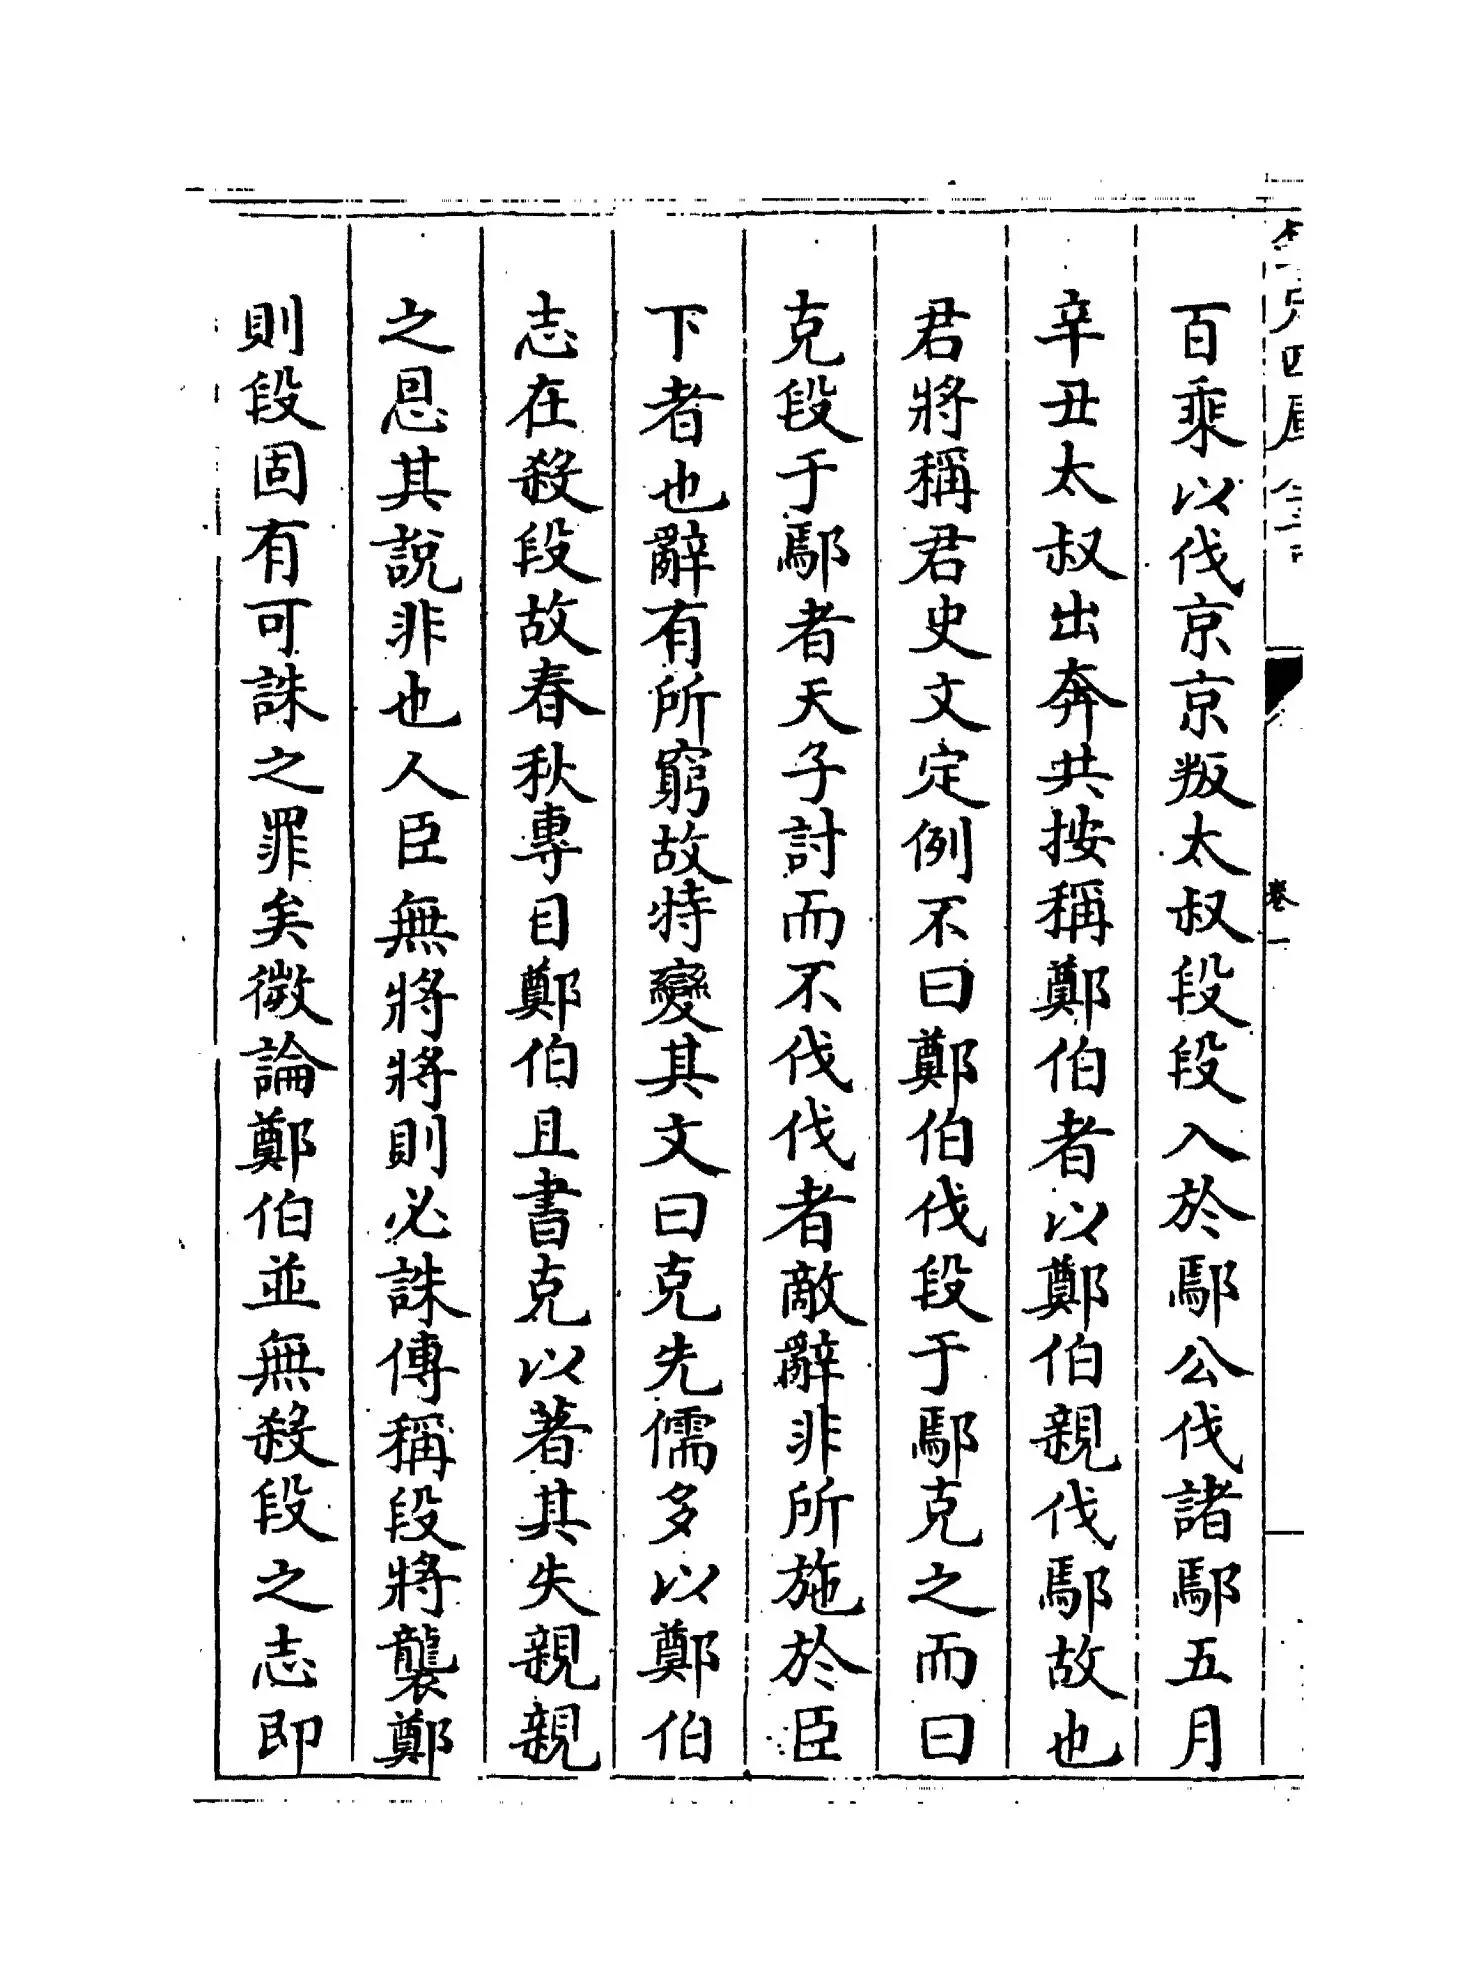 欽定四庫全書
卷一
百乘以伐京京叛太叔段段入於鄢公伐諸鄢五月
辛丑太叔出奔共按稱鄭伯者以鄭伯親伐鄢故也
君將稱君史文定例不曰鄭伯伐段于鄢克之而曰
克段于鄢者天子討而不伐伐者敵辭非所施於臣
下者也辭有所窮故特變其文曰克先儒多以鄭伯
志在殺段故春秋專目鄭伯且書克以著其失親親
之恩其說非也人臣無將將則必誅傳稱段將襲鄭
則段固有可誅之罪矣微論鄭伯並無殺段之志即